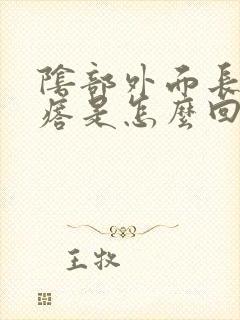 陰部外面長
瘩是怎麼回
王牧